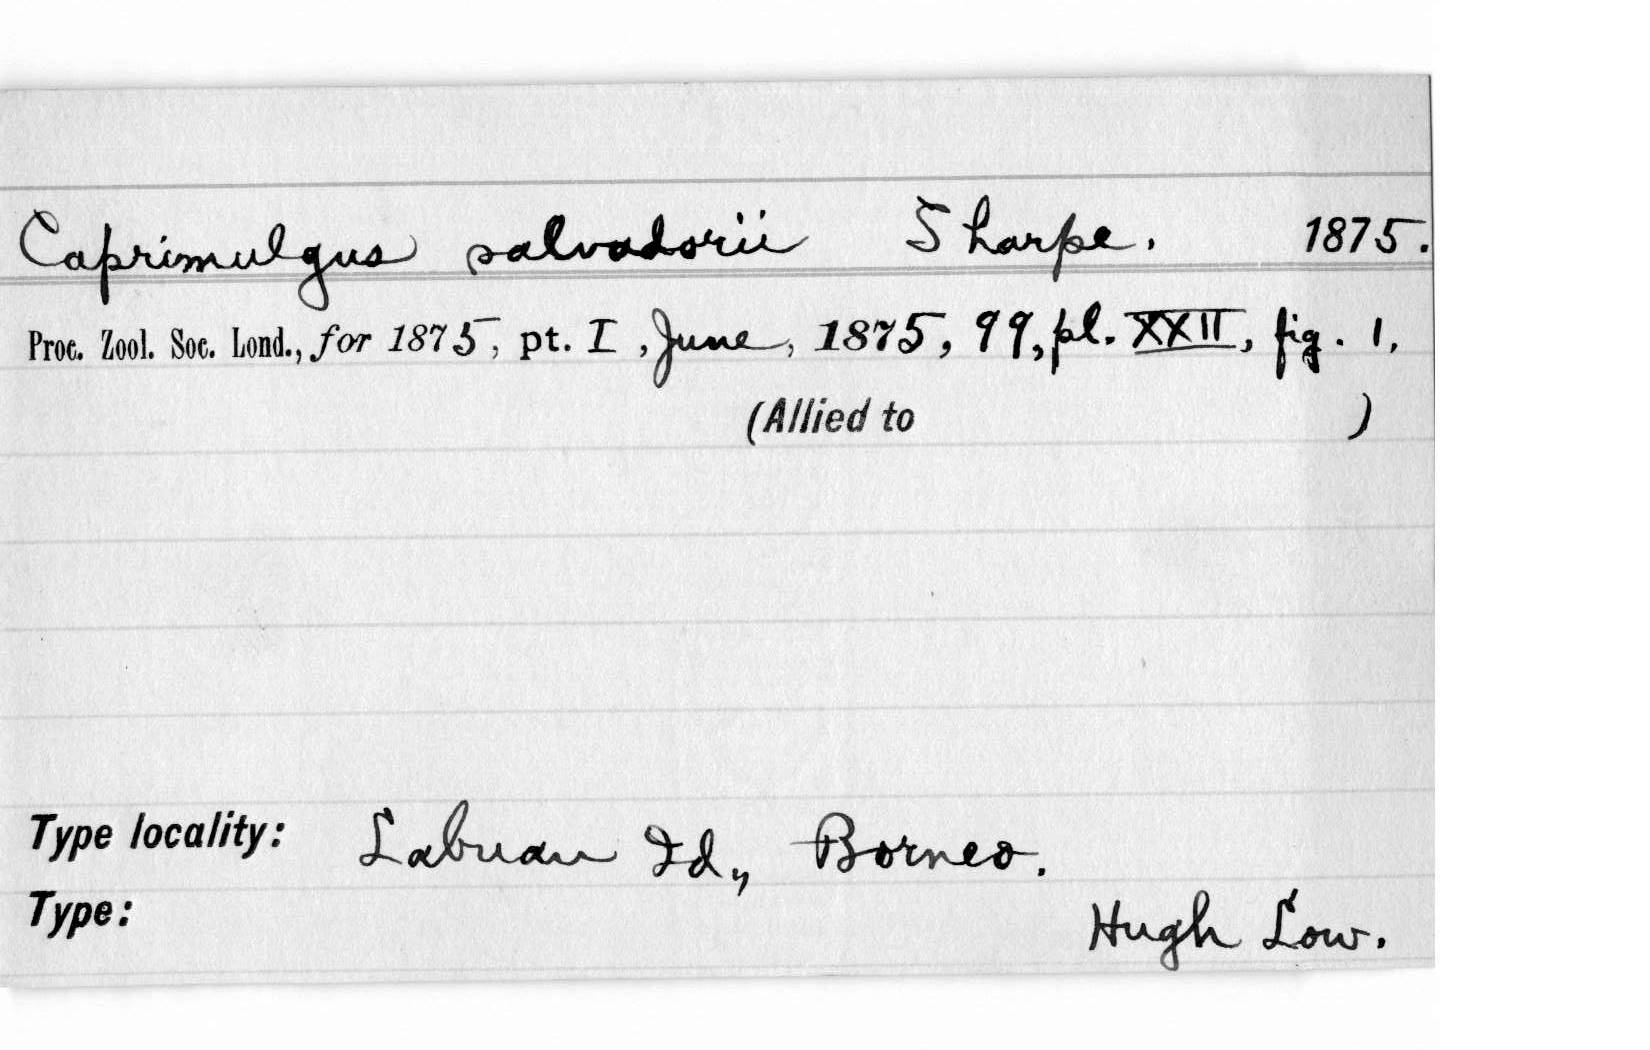 Caprimulgus salvadorii Sharpe. 1875.
Proc. Zool. Soc. Lond., for 1875, pt. I, June, 1875, 99, pl. XXII, fig. 1,
(Allied to )
Type locality: Labuan Id., Borneo.
Type: Hugh Low.